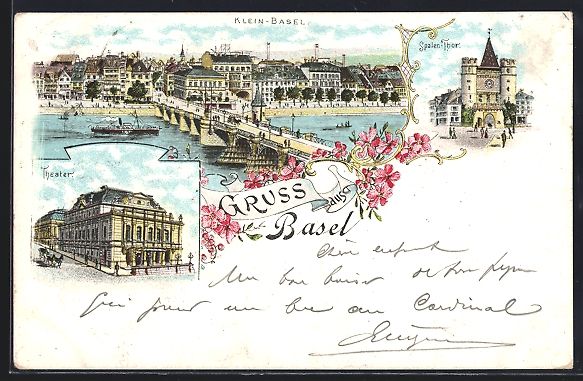 KLEIN-BASEL.
Spalen-Thor.
Theater.
GRUSS aus
Basel
Chère enfant
Un bon baiser de ton papa
qui prend un bock au Cardinal
Eugène